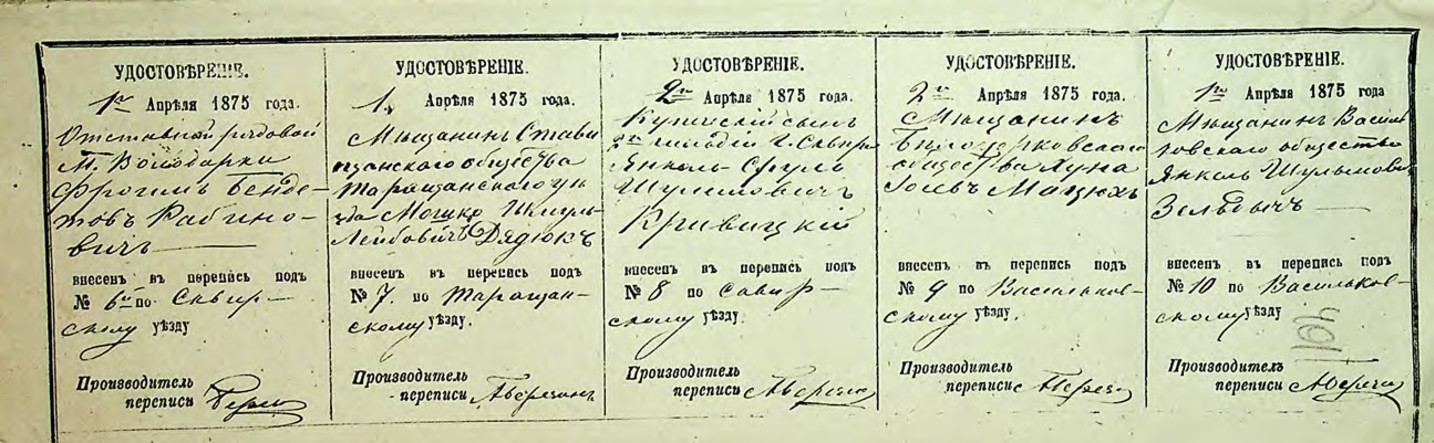 УДОСТОВѢРЕНІЕ.
1го Апрѣля 1875 года.
Отставной рядовой
М. Володарки
Фроимъ Бенде-
товъ Рабино-
вичъ
внесенъ въ перепись подъ
№ 6м по Сквир-
скому уѣзду
Производитель
переписи
УДОСТОВѢРЕНІЕ.
1. Апрѣля 1875 года.
Мѣщанинъ Стави
щанскаго общества
Таращанскаго уѣ
зда Мошко Шмуль
Лейбовичъ Дядюкъ
внесенъ въ перепись подъ
№ 7. по Таращан-
скому уѣзду.
Производитель
переписи
УДОСТОВѢРЕНІЕ.
2го Апрѣля 1875 года.
Купеческій сынъ
2й гильдіи г. Сквиры
Янкель Сруль
Шулимовичъ
Кривицкій
внесенъ въ перепись подъ
№ 8 по Сквир-
скому уѣзду
Производитель
переписи
УДОСТОВѢРЕНІЕ.
2го Апрѣля 1875 года.
Мѣщанинъ
Бѣлоцерковскаго
общества Хуна
Мацюхъ
внесенъ въ перепись подъ
№ 9 по Васильков-
скому уѣзду.
Производитель
переписи
УДОСТОВѢРЕНІЕ.
1го Апрѣля 1875 года
Мѣщанинъ Василь
ковскаго общества
Янкель Шульмови
внесенъ въ перепись подъ
№ 10 по Васильков-
скому уѣзду
Производитель
переписи